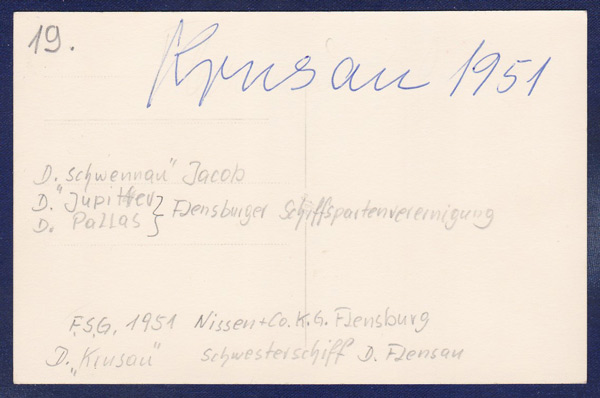 19.
Krusau 1951
D. Schwennau" Jacob
D. "Jupitter
D. Pallas } Flensburger Schiffspartenvereinigung
F.S.G. 1951 Nissen + Co. K.G. Flensburg
D. „Krusau" Schwesterschiff D. Flensau